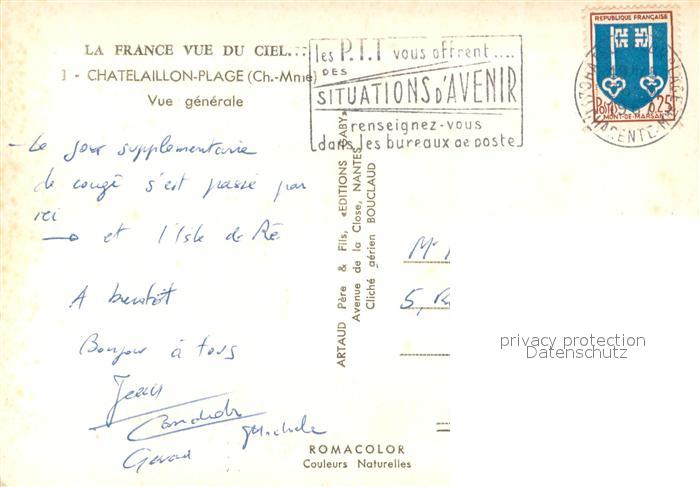 LA FRANCE VUE DU CIEL...
1 - CHATELAILLON-PLAGE (Ch.-Mme)
Vue générale
les P.T.T vous offrent....
DES
SITUATIONS D'AVENIR
renseignez-vous
dans les bureaux de poste
REPUBLIQUE FRANÇAISE
POSTES 0,25
MONT-DE-MARSAN
Le jour supplementaire
de congé s'est passé par
ici
et l'Isle de Ré
A bientôt
Bonjour à tous
Jean
Michele
ARTAUD Père & Fils, «EDITIONS GABY»
Avenue de la Close, NANTES
Cliché aérien BOUCLAUD
Mr
5, R
privacy protection
Datenschutz
ROMACOLOR
Couleurs Naturelles